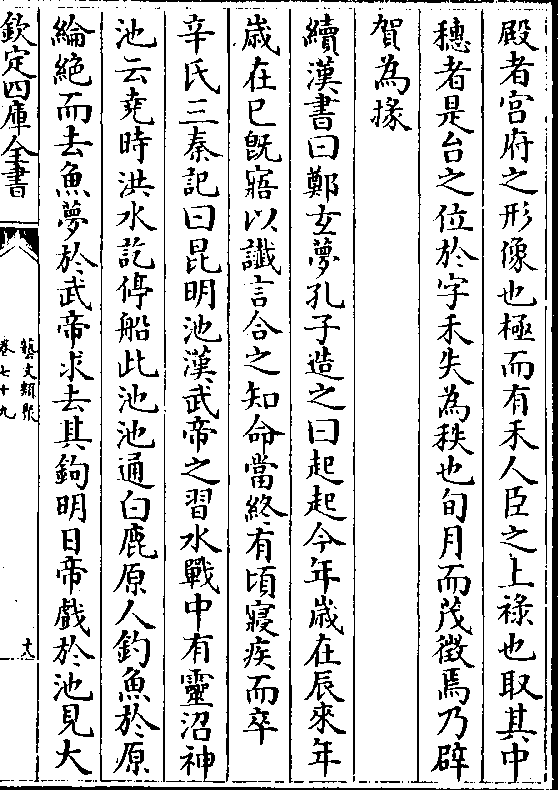 殿者宫府之形像也極而有禾人臣之上祿也取其中
穗者是台之位於字禾失為秩也旬月而茂徵焉乃辟
賀為掾
續漢書曰鄭玄夢孔子造之曰起起今年歳在辰來年
歳在巳既寤以讖言合之知命當終有頃寢疾而卒
辛氏三秦記曰昆明池漢武帝之習水戰中有靈沼神
池云堯時洪水訖停船此池池通白鹿原人釣魚於原
綸絶而去魚夢於武帝求去其鉤明日帝戲於池見大
欽定四庫全書
藝文類聚
卷七十九
十六